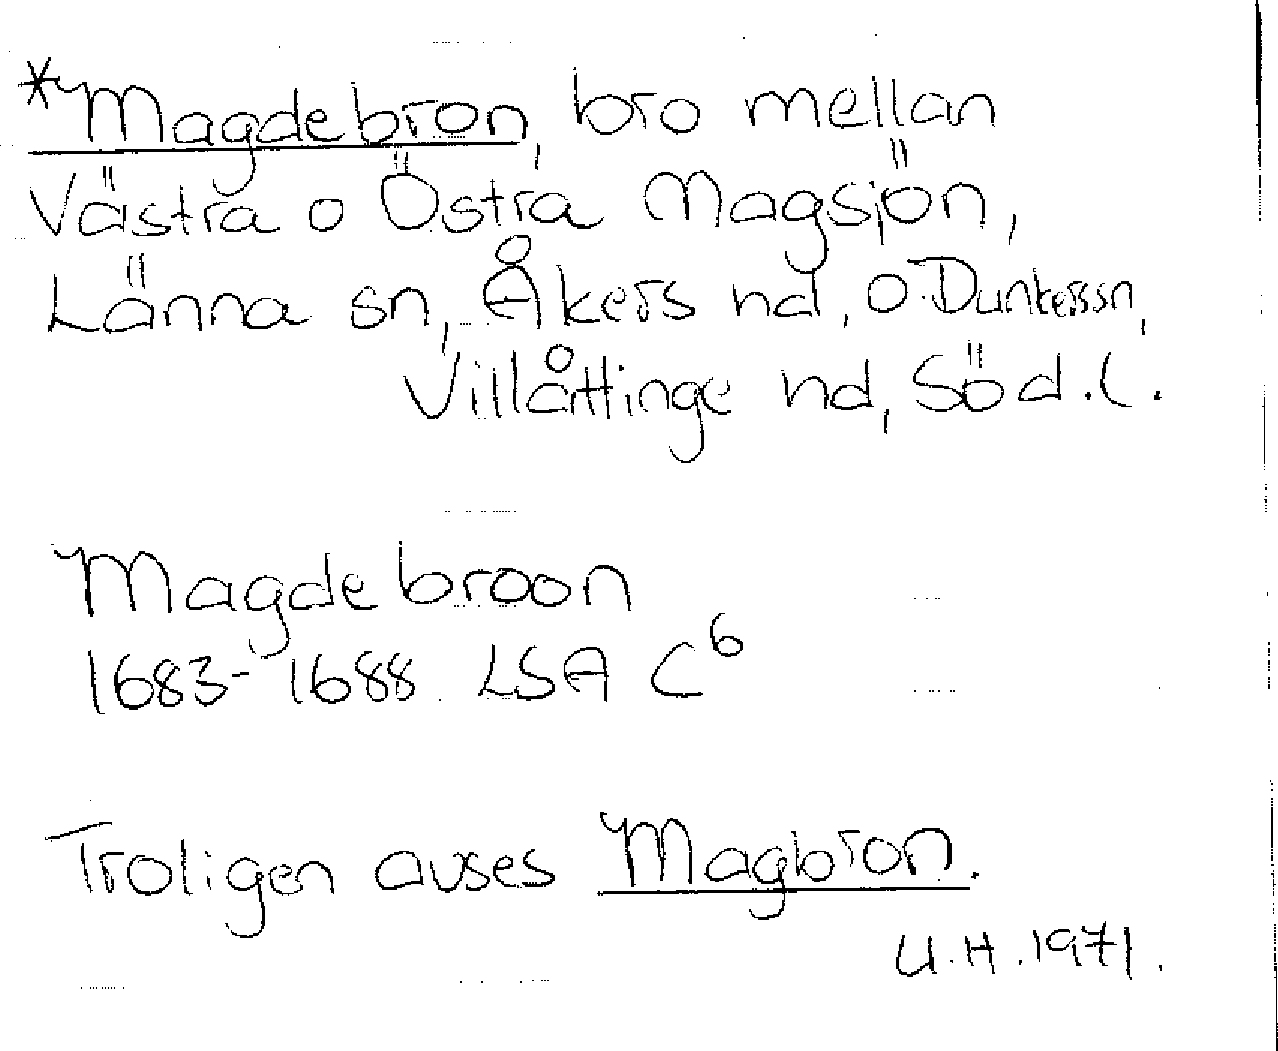 *Magdebron, bro mellan
Västra o Östra Magsjön,
Länna sn, Åkers hd, o Dunkers sn,
Villåttinge hd, Söd. l.
Magdebroon
1683-1688. LSA C6
Troligen avses Magbron.
U.H. 1971.